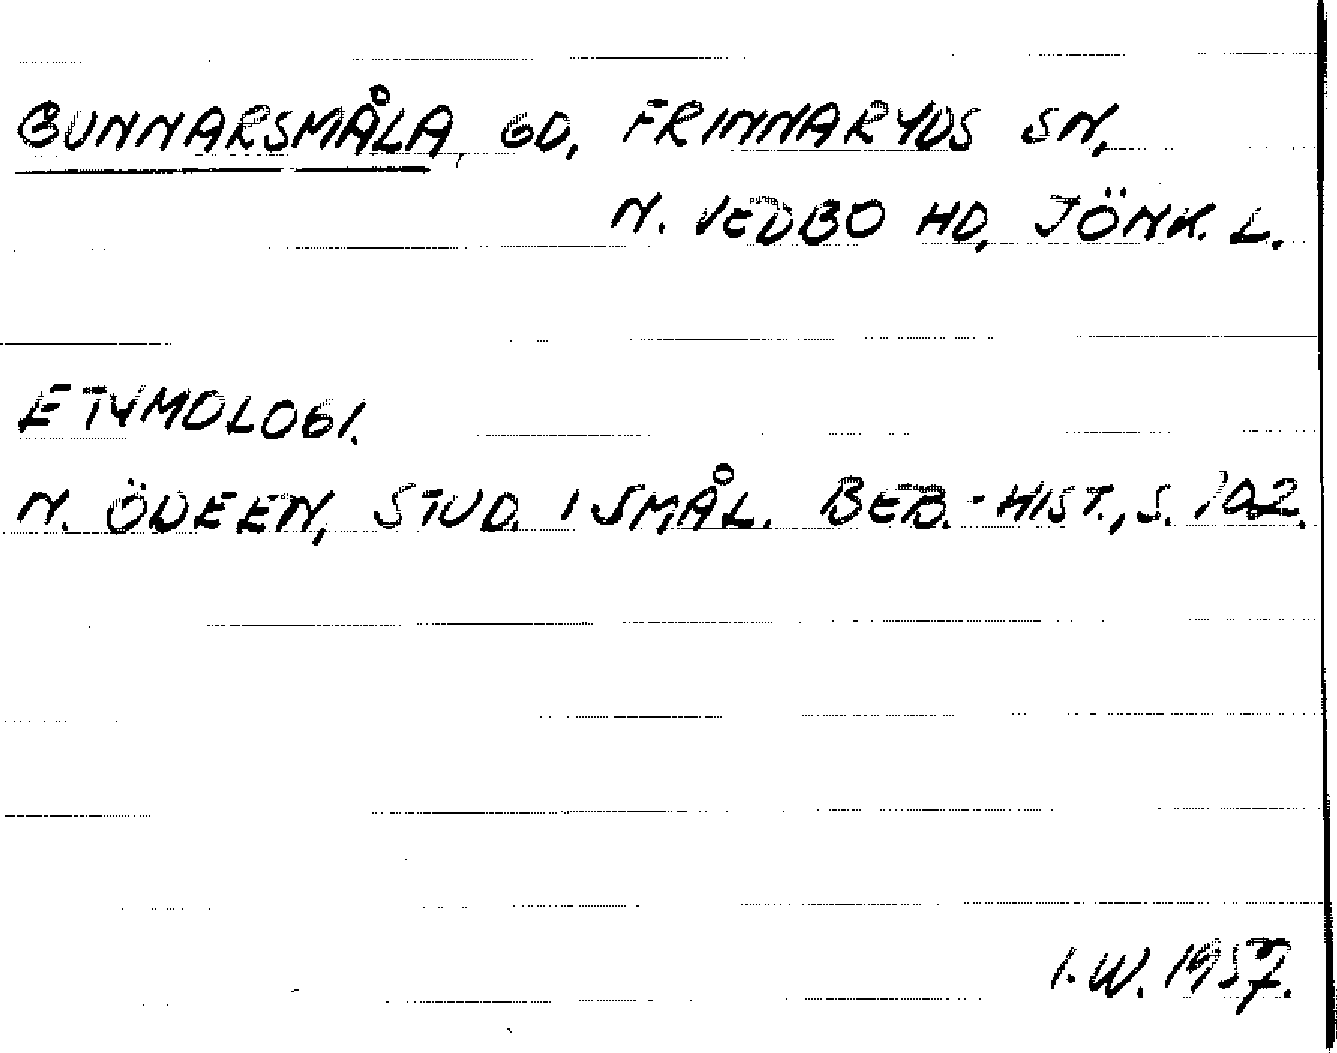 GUNNARSMÅLA, GD, FRINNARYDS SN,
N. VEDBO HD, JÖNK. L.
ETYMOLOGI.
N. ÖDEEN, STUD. I SMÅL. BEB.-HIST., S. 102.
I.W. 1957.